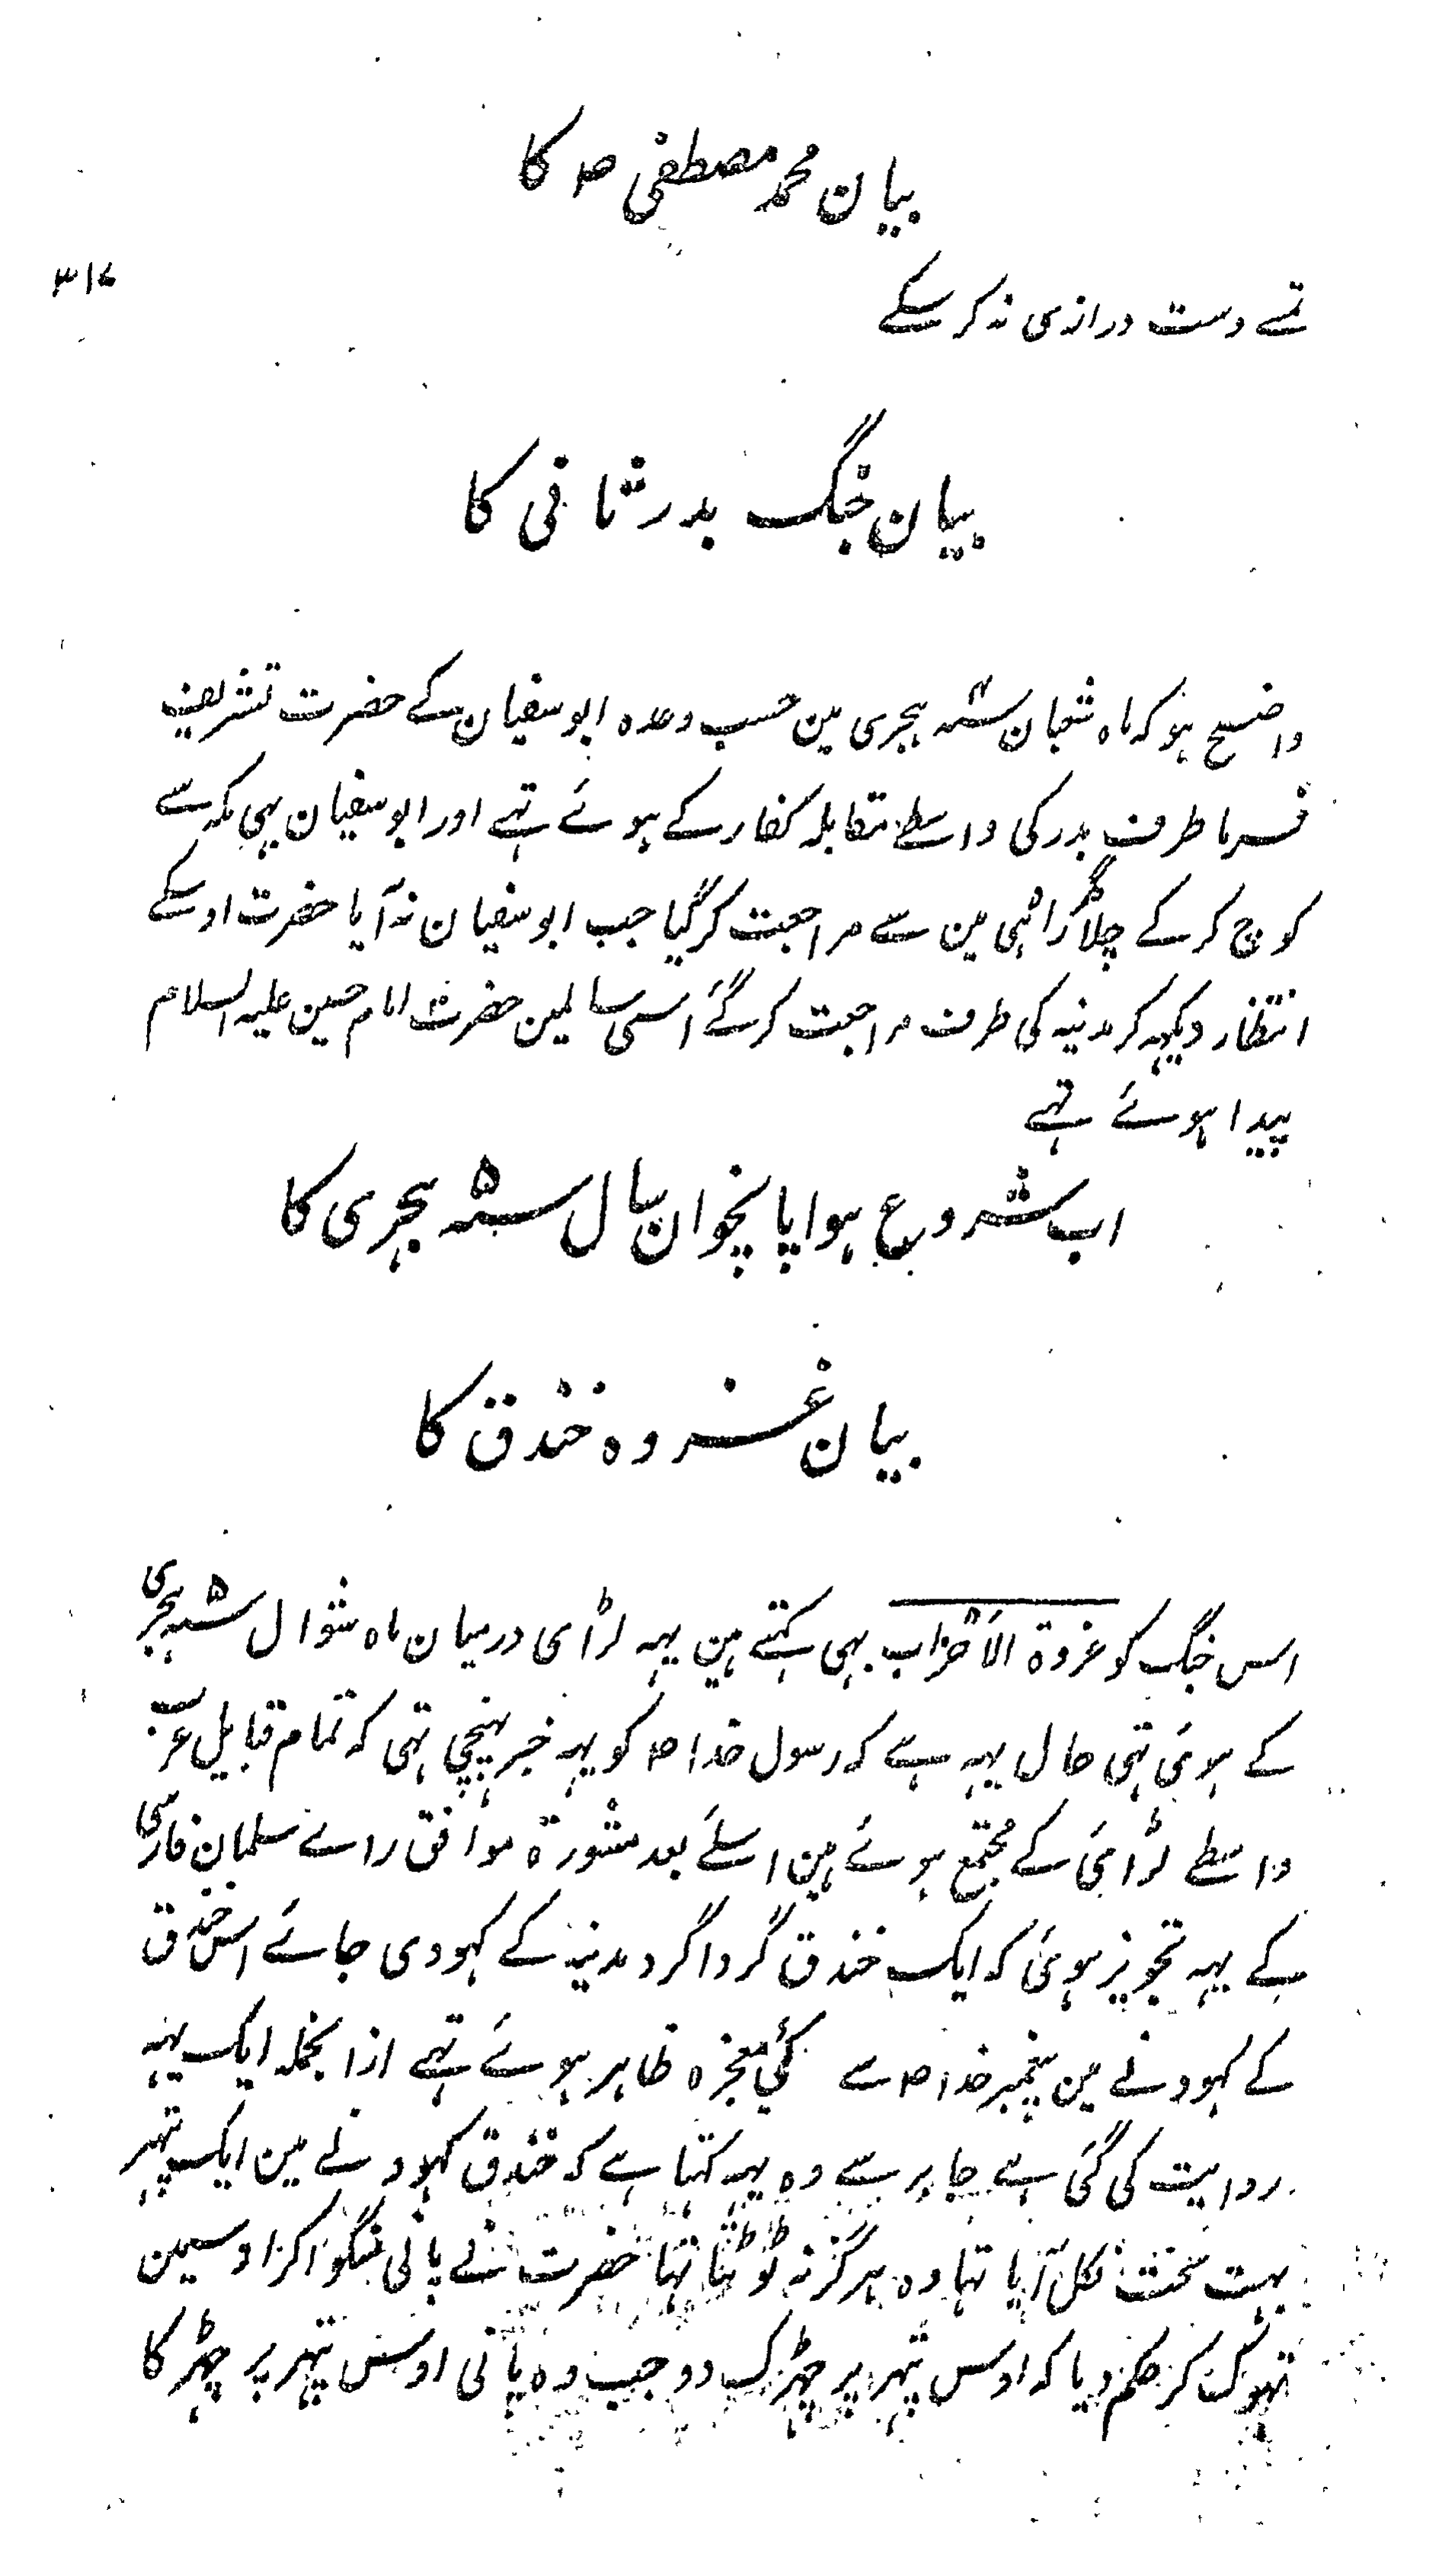 بیان محمد مصطفی ص کا
۳۱۷
تمسے دست درازی نہ کر سکے
بیان جنگ بدر ثانی کا
واضح ہو کہ ماہ شعبان سنہ ۴ ہجری مین حسب وعدہ ابو سفیان کے حضرت تشریف
فرما طرف بدر کی واسطے مقابلہ کفار کے ہوئے تہے اور ابو سفیان بہی مکہ سے
کوچ کر کے چلا مگر راہ ہی مین سے مراجعت کر گیا جب ابو سفیان نہ آیا حضرت اوسکے
انتظار دیکہہ کر مدینہ کی طرف مراجعت کر گئے اسی سالمین حضرت امام حسین علیہ السلام
پیدا ہوئے تہے
اب شروع ہوا پانچوان سال سنہ ۵ ہجری کا
بیان غزوہ خندق کا
اس جنگ کو غزوۃ الاَحْزاب بہی کہتے ہین یہہ لڑائی درمیان ماہ شوال سنہ ۵ ہجری
کے ہوئی تہی حال یہہ ہے کہ رسول خدا ص کو یہہ خبر پہنچی تہی کہ تمام قبایل عرب
واسطے لڑائی کے مجتمع ہوئے ہین اسلئے بعد مشورۃ موافق رائے سلمان فارسی
کے یہہ تجویز ہوئی کہ ایک خندق گردا گرد مدینہ کے کہودی جائے اس خندق
کے کہودنے مین پیغمبر خدا ص سے کئی معجزہ ظاہر ہوئے تہے ازانجملہ ایک یہہ
روایت کی گئی ہے جابر سے وہ یہہ کہتا ہے کہ خندق کہودنے مین ایک پتہر
بہت سخت نکل آیا تہا وہ ہرگز نہ ٹوٹتا تہا حضرت نے پانی منگوا کر اوسمین
تہوک کر حکم دیا کہ اوس پتہر پر چہڑک دو جب وہ پانی اوس پتہر پر چہڑکا